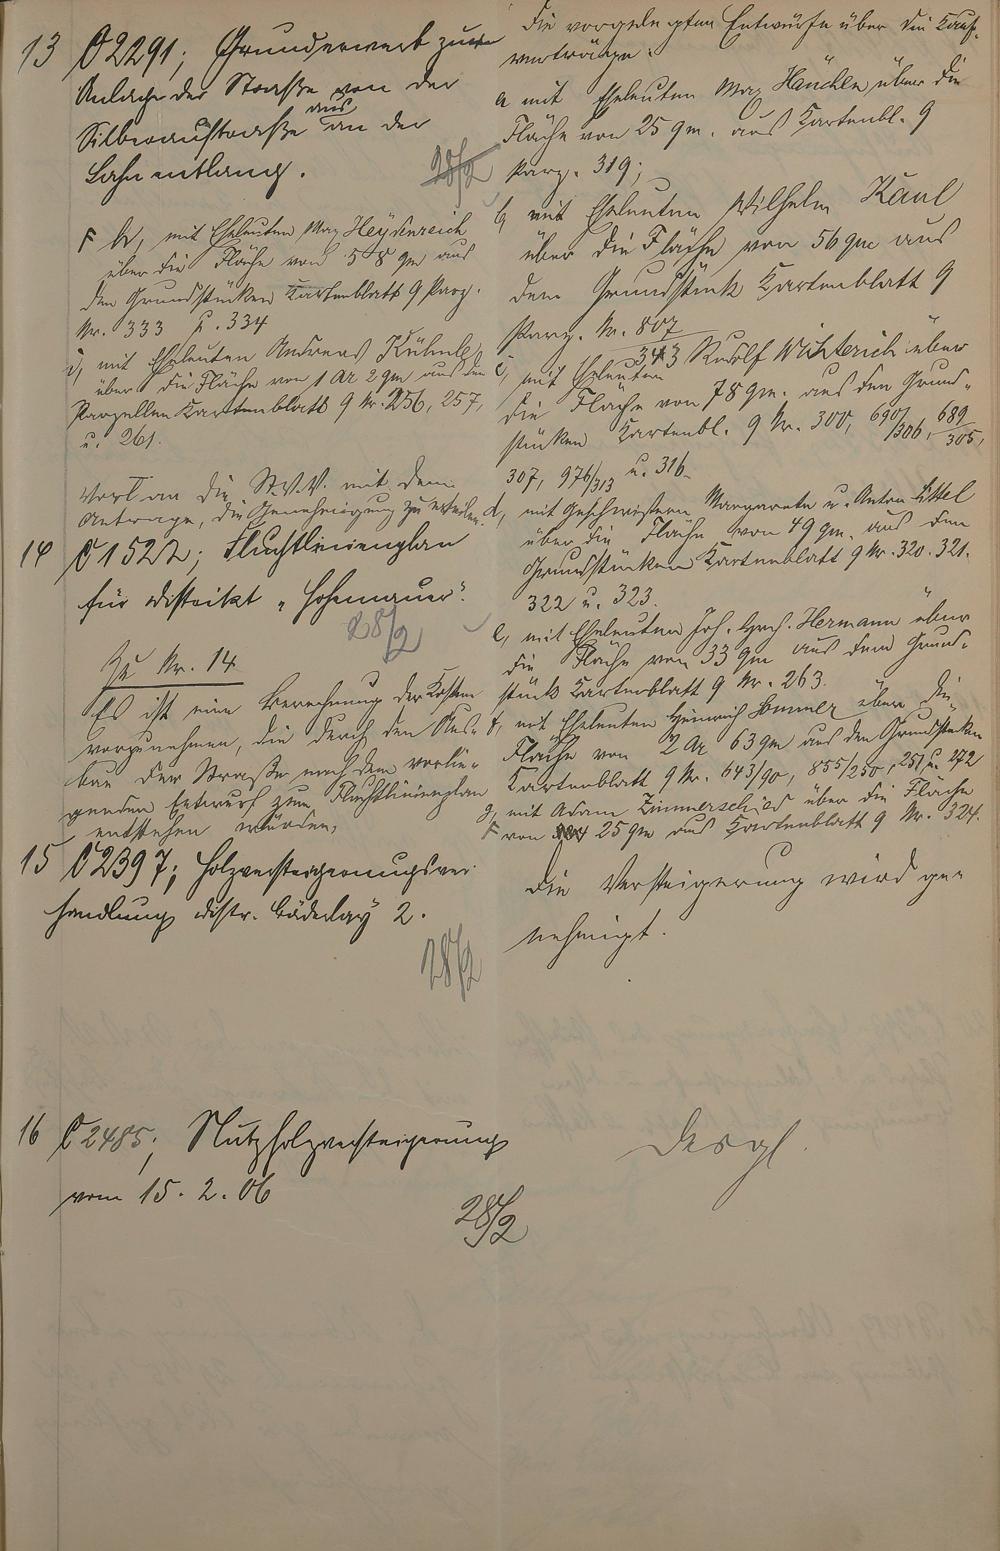 13 C 2291; Grunderwerb zur
Anlage der Straße von der
Silberaustraße aus an der
Lahn entlang.
28/2
F h, mit Eheleuten Max Heydenreich
über die Fläche von 58 qm aus
den Grundstücken Kartenblatt 9 Parz.
Nr. 333 u. 334
i, mit Eheleuten Andreas Kühnle
über die Fläche von 1 Ar 2 qm aus den
Parzellen Kartenblatt 9 Nr. 256, 257,
u. 261.
Vorl. an die St.V.V. mit dem
Antrage, die Genehmigung zu erteilen.
14 C 1522; Fluchtlinienplan
für Distrikt "Hohemauer".
28/2
Zu Nr. 14
Es ist eine Berechnung der Kosten
vorzunehmen, die durch den Aus-
bau der Straße nach dem vorlie-
genden Entwurf zum Fluchtlinienplan
entstehen würden,
15 C 2397; Holzversteigerungsver
handlung Distr. Bäderlay 2.
28/2
16 C 2485; Nutzholzversteigerung
vom 15. 2. 06
28/2
Die vorgelegten Entwürfe über die Kauf-
verträge:
a mit Eheleuten Max Hänchen über die
Fläche von 25 qm. aus Kartenbl. 9
Parz. 319;
b, mit Eheleuten Wilhelm Kaul
über die Fläche von 56 qm aus
dem Grundstück Kartenblatt 9
Parz. Nr. 807/343
c, mit Eheleuten Rudolf Wichterich über
die Fläche von 78 qm. aus den Grund-
stücken Kartenbl. 9 Nr. 300, 690/306, 689/305,
307, 976/313 u. 316
d, mit Geschwistern Margarete u. Anton Littel
über die Fläche von 49 qm. aus den
Grundstücken Kartenblatt 9 Nr. 320. 321.
322 u. 323.
e, mit Eheleuten Joh. Hrch. Hermann über
die Fläche von 33 qm aus dem Grund-
stück Kartenblatt 9 Nr. 263.
f, mit Eheleuten Heinrich Sommer über die
Fläche von 2 Ar 63 qm aus den Grundstücken
Kartenblatt 9 Nr. 643/90, 855/250, 251 u. 272
g, mit Adam Zimmerschied über die Fläche
F von 25 qm aus Kartenblatt 9 Nr. 324.
Die Versteigerung wird ge-
nehmigt.
Desgl.